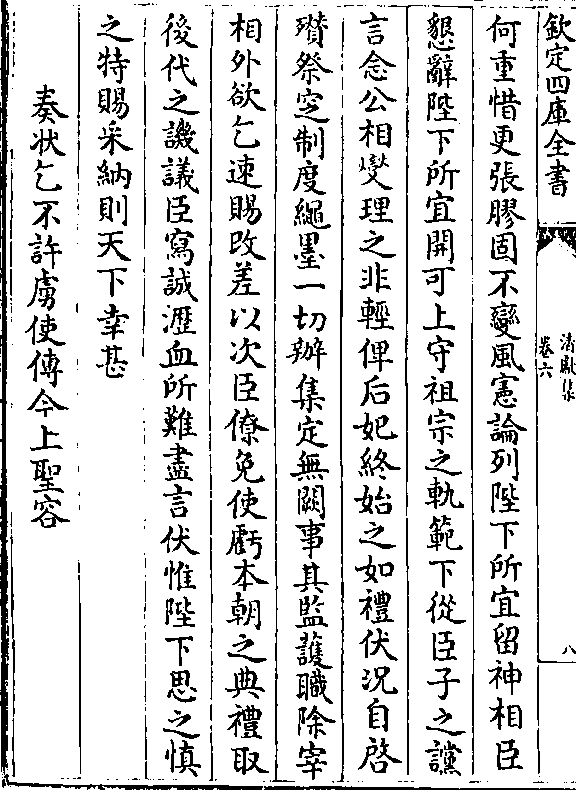 欽定四庫全書
清獻集
卷六
八
何重惜更張膠固不變風憲論列陛下所宜留神相臣
懇辭陛下所宜開可上守祖宗之軌範下從臣子之讜
言念公相燮理之非輕俾后妃終始之如禮伏況自啓
瓚祭定制度繩墨一切辦集定無闕事其監護職除宰
相外欲乞速賜改差以次臣僚免使虧本朝之典禮取
後代之譏議臣寫誠瀝血所難盡言伏惟陛下思之慎
之特賜采納則天下幸甚
奏狀乞不許虜使傳今上聖容